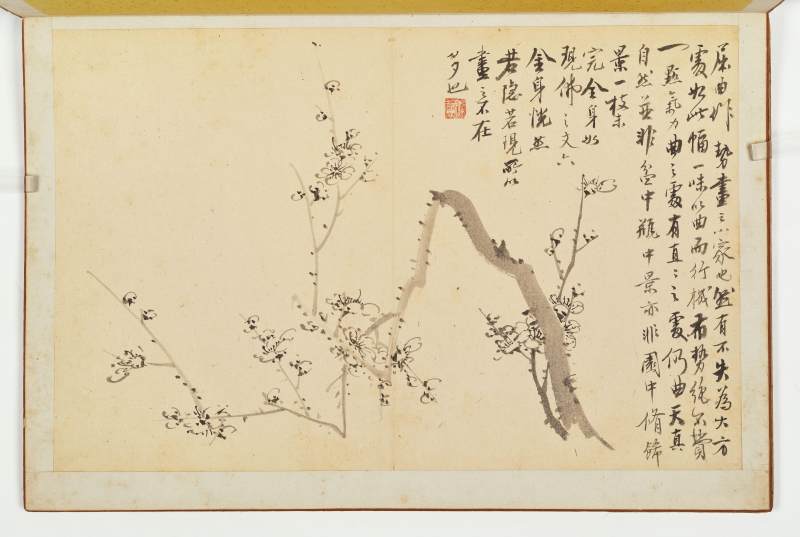 屈曲作勢畫之小家也然有不失為大方
處如此幅一味以曲而行機有勢絕不費
一點氣力曲之處有直直之處仍曲天真
自然並非盆中瓶中景亦非園中脩飾
景一枝未
完全身如
現佛之丈六
金身恍然
若隱若現所以
畫之不在
多也